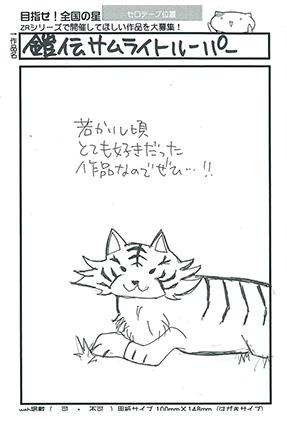 目指せ！全国の星
セロテープ位置
ZRシリーズで開催してほしい作品を大募集！
作品名
鎧伝サムライトルーパー
若かりし頃
とても好きだった
作品なのでぜひ…!!
web掲載（ 可 ・ 不可 ）用紙サイズ 100mm×148mm（はがきサイズ）